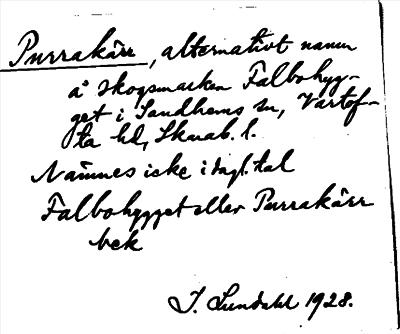 Purrakärr, alternativt namn
å skogsmarken Falbohyg-
get i Sandhems sn, Vartof-
ta hd, Skarab. l.
Nämnes icke i dagl. tal
Falbohygget eller Purrakärr
bek
I. Lundahl 1928.